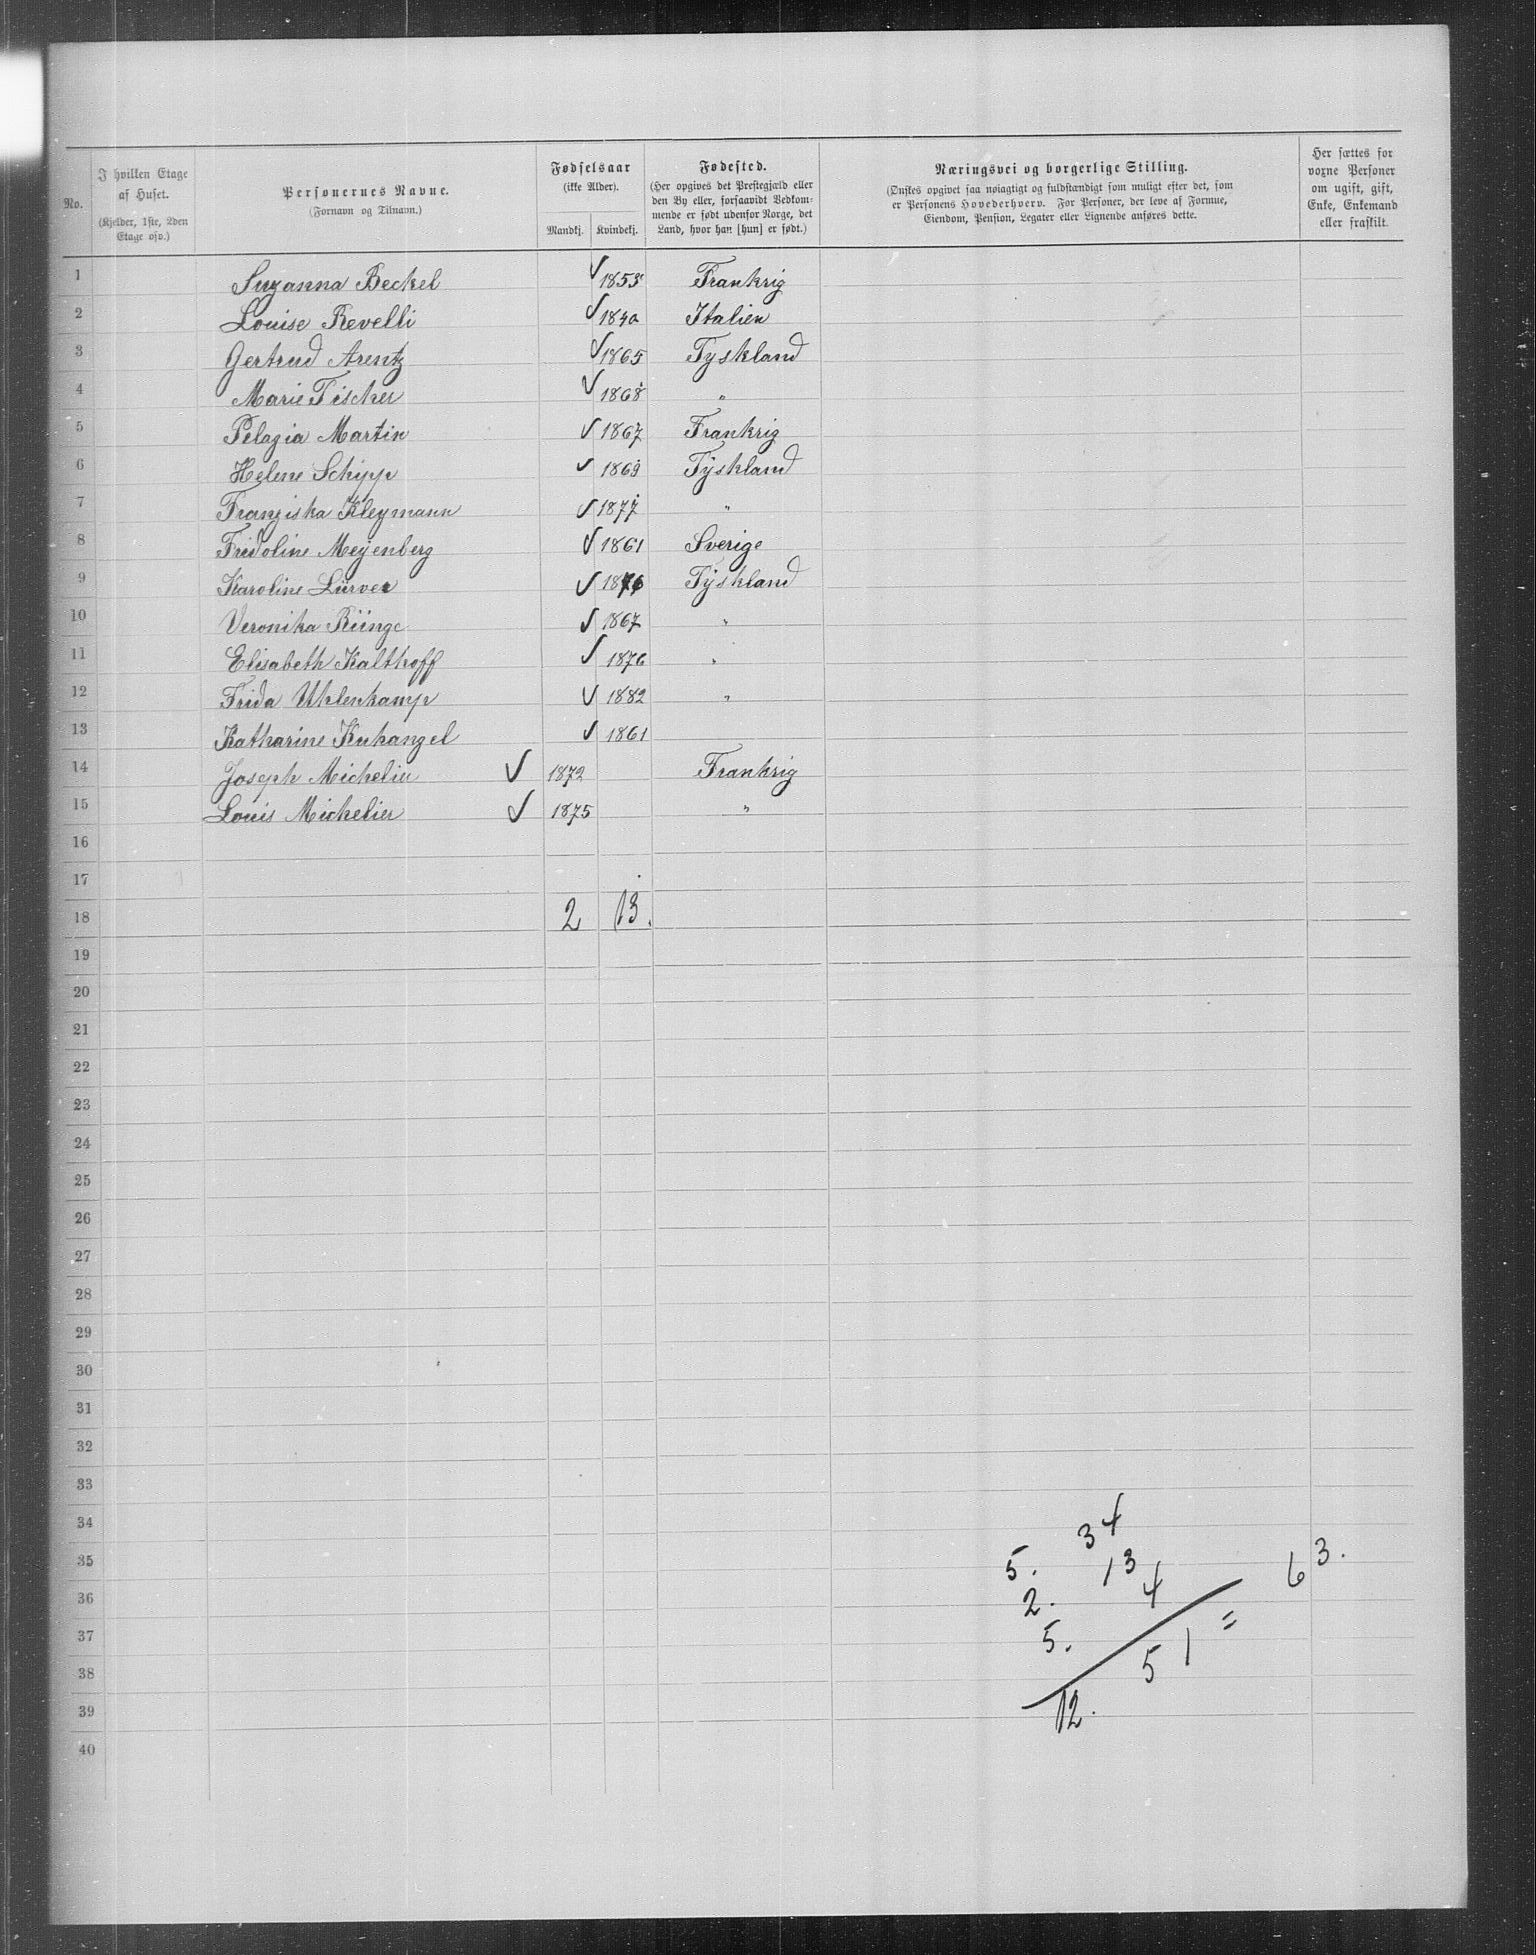 No.
I hvilken Etage af Huset.
(Kjelder, 1ste, 2den Etage osv.)
Personernes Navne.
(Fornavn og Tilnavn.)
Fødselsaar
(ikke Alder).
Mandkj. Kvindekj.
Fødested.
(Her opgives det Prestegjæld eller
den By eller, forsaavidt Vedkom-
mende er født udenfor Norge, det
Land, hvor han [hun] er født.)
Næringsvei og borgerlige Stilling.
(Ønskes opgivet saa nøiagtigt og fuldstændigt som muligt efter det, som
er Personens Hovederhverv. For Personer, der leve af Formue,
Eiendom, Pension, Legater eller Lignende anføres dette.
Her sættes for
voxne Personer
om ugift, gift,
Enke, Enkemand
eller fraskilt.
1 Suzanna Beckel √ 1853 Frankrig
2 Louise Revelli √ 1840 Italien
3 Gertrud Arentz √ 1865 Tyskland
4 Marie Fischer √ 1868 "
5 Pelagia Martin √ 1867 Frankrig
6 Helene Schipp √ 1869 Tyskland
7 Franziska Kleymann √ 1877 "
8 Fridoline Meyenberg √ 1861 Sverige
9 Karoline Lürver √ 1876 Tyskland
10 Veronika Rünge √ 1867 "
11 Elisabeth Kalthoff √ 1876 "
12 Frida Uhlenkamp √ 1882 "
13 Katharine Kuhangel √ 1861
14 Joseph Michelier √ 1872 Frankrig
15 Louis Michelier √ 1875 "
16
17
18 2 13.
19
20
21
22
23
24
25
26
27
28
29
30
31
32
33
34 34
35 5. 13 63.
36 2. 4
37 5. =
38 51
39 12.
40